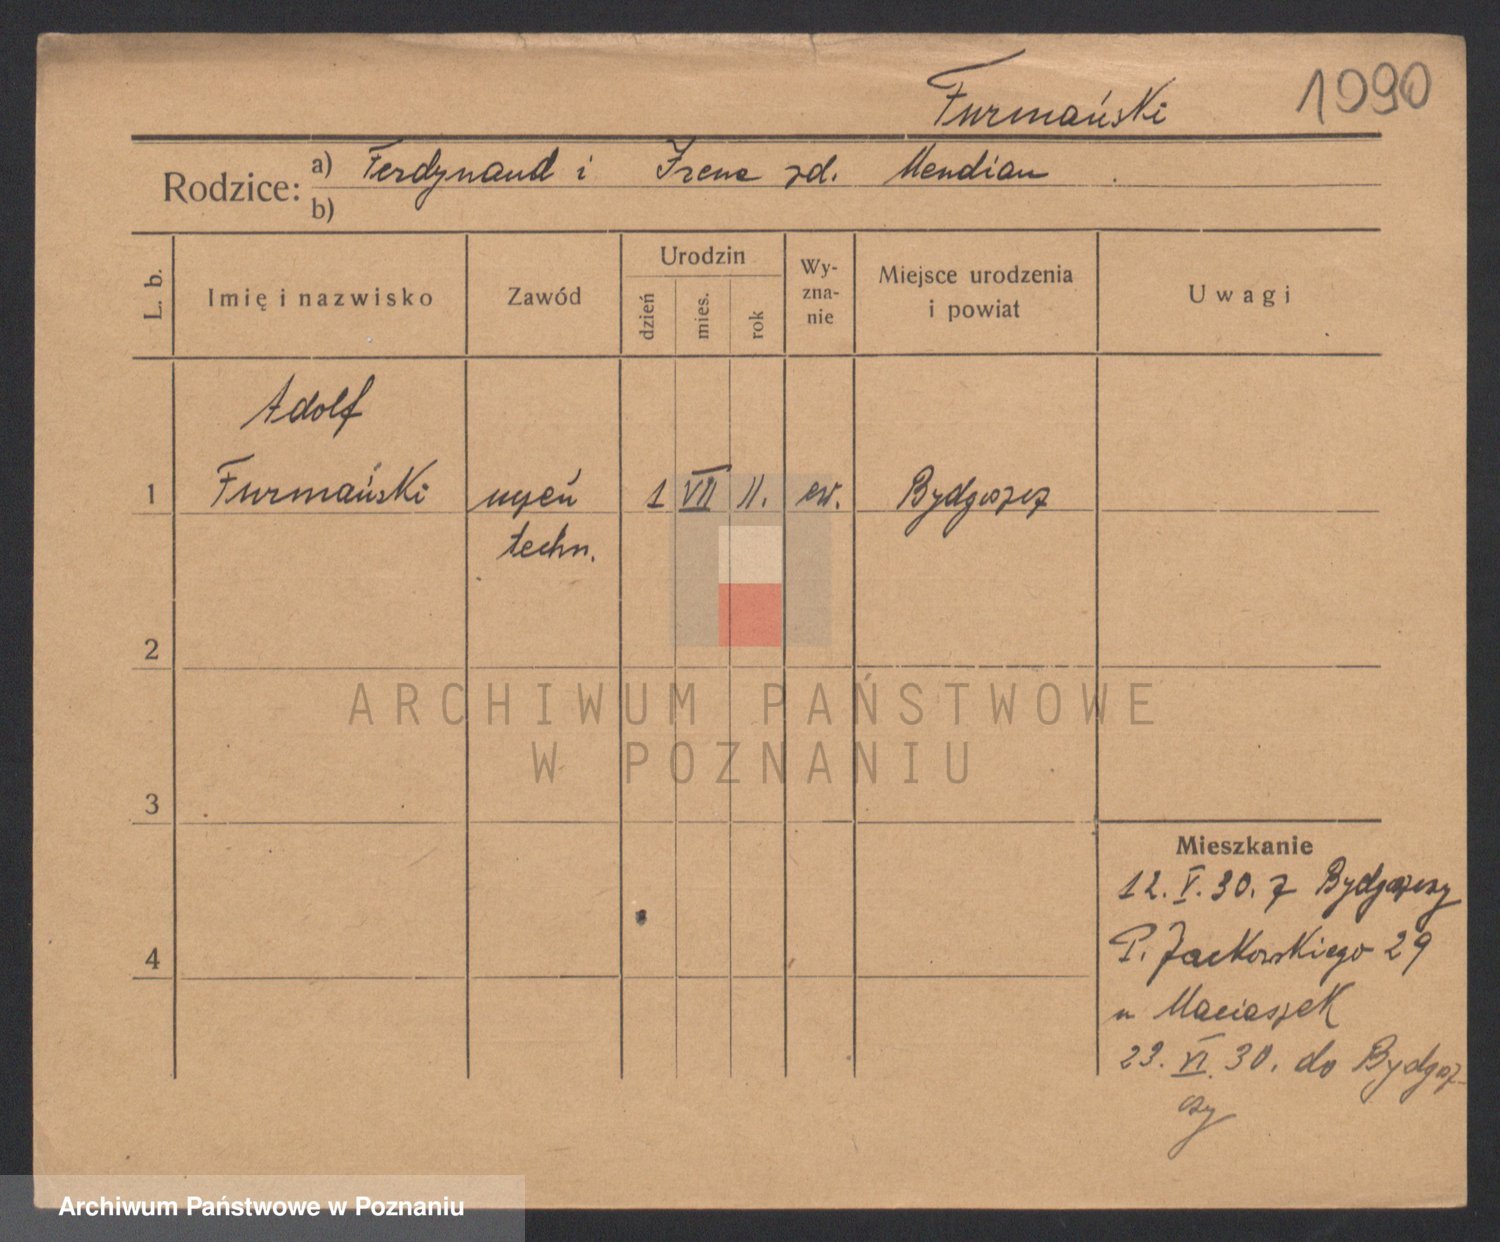 Furmański 1090
Rodzice: a) Ferdynand i Irena zd. Mendian
b)
L. b. Imię i nazwisko Zawód Urodzin dzień mies. rok Wyzna-nie Miejsce urodzenia i powiat Uwagi
Adolf
1 Furmański uczeń 1 VII 11. ew. Bydgoszcz
techn.
2
ARCHIWUM PAŃSTWOWE
W POZNANIU
3
Mieszkanie
12. V. 30. z Bydgoszczy
P. Jackowskiego 29
4
u Maciaszek
23. VI. 30. do Bydgosz-
czy
Archiwum Państwowe w Poznaniu